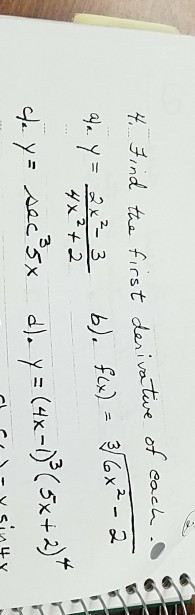 4. Find the first derivative of each.
a. y = (2x² - 3)/(4x² + 2)   b). f(x) = ∛(6x² - 2)
c). y = sec³5x   d). y = (4x-1)³(5x+2)⁴